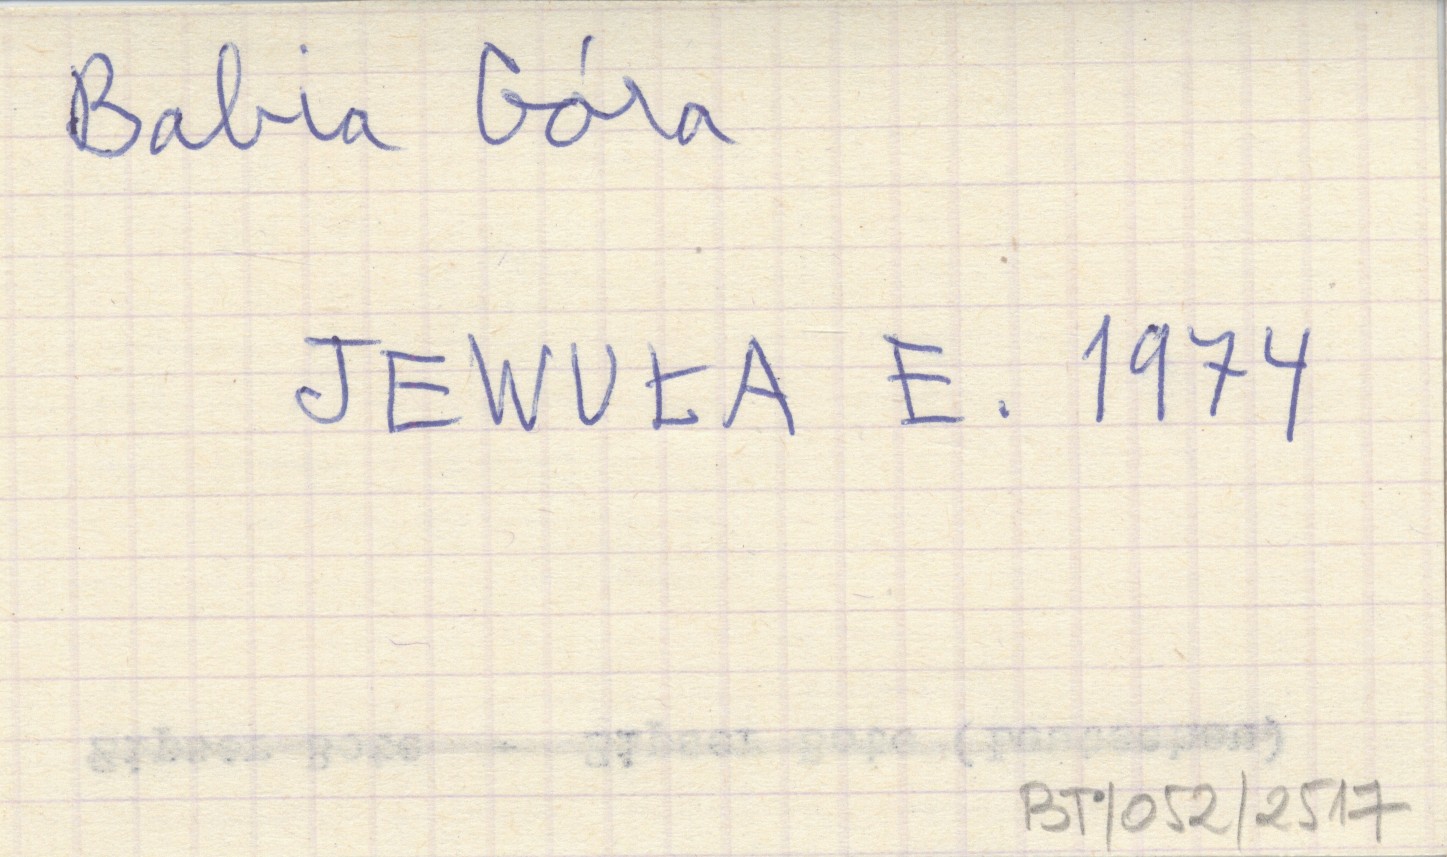 Babia Góra
JEWUŁA E. 1974
BT/052/2517